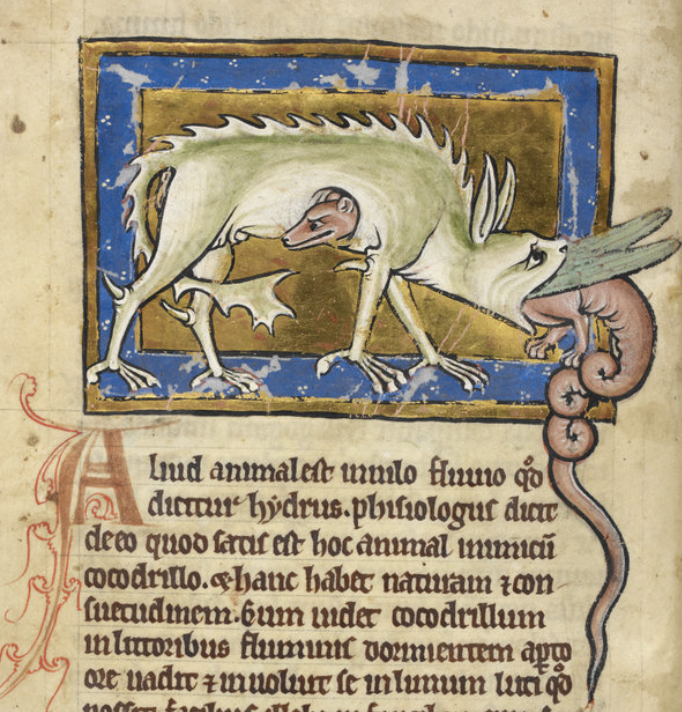 Aliud animal est in nilo fluuio q̊d
dicitur hẏdrus. phisiologus dicit
de eo quod satis est hoc animal inimicū
cocodrillo. ⁊ hanc habet naturam ⁊ con
suetudinem. Cum uidet cocodrillum
in littoribus fluminis dormientem apto
ore uadit ⁊ inuoluit se in limum luti q̊